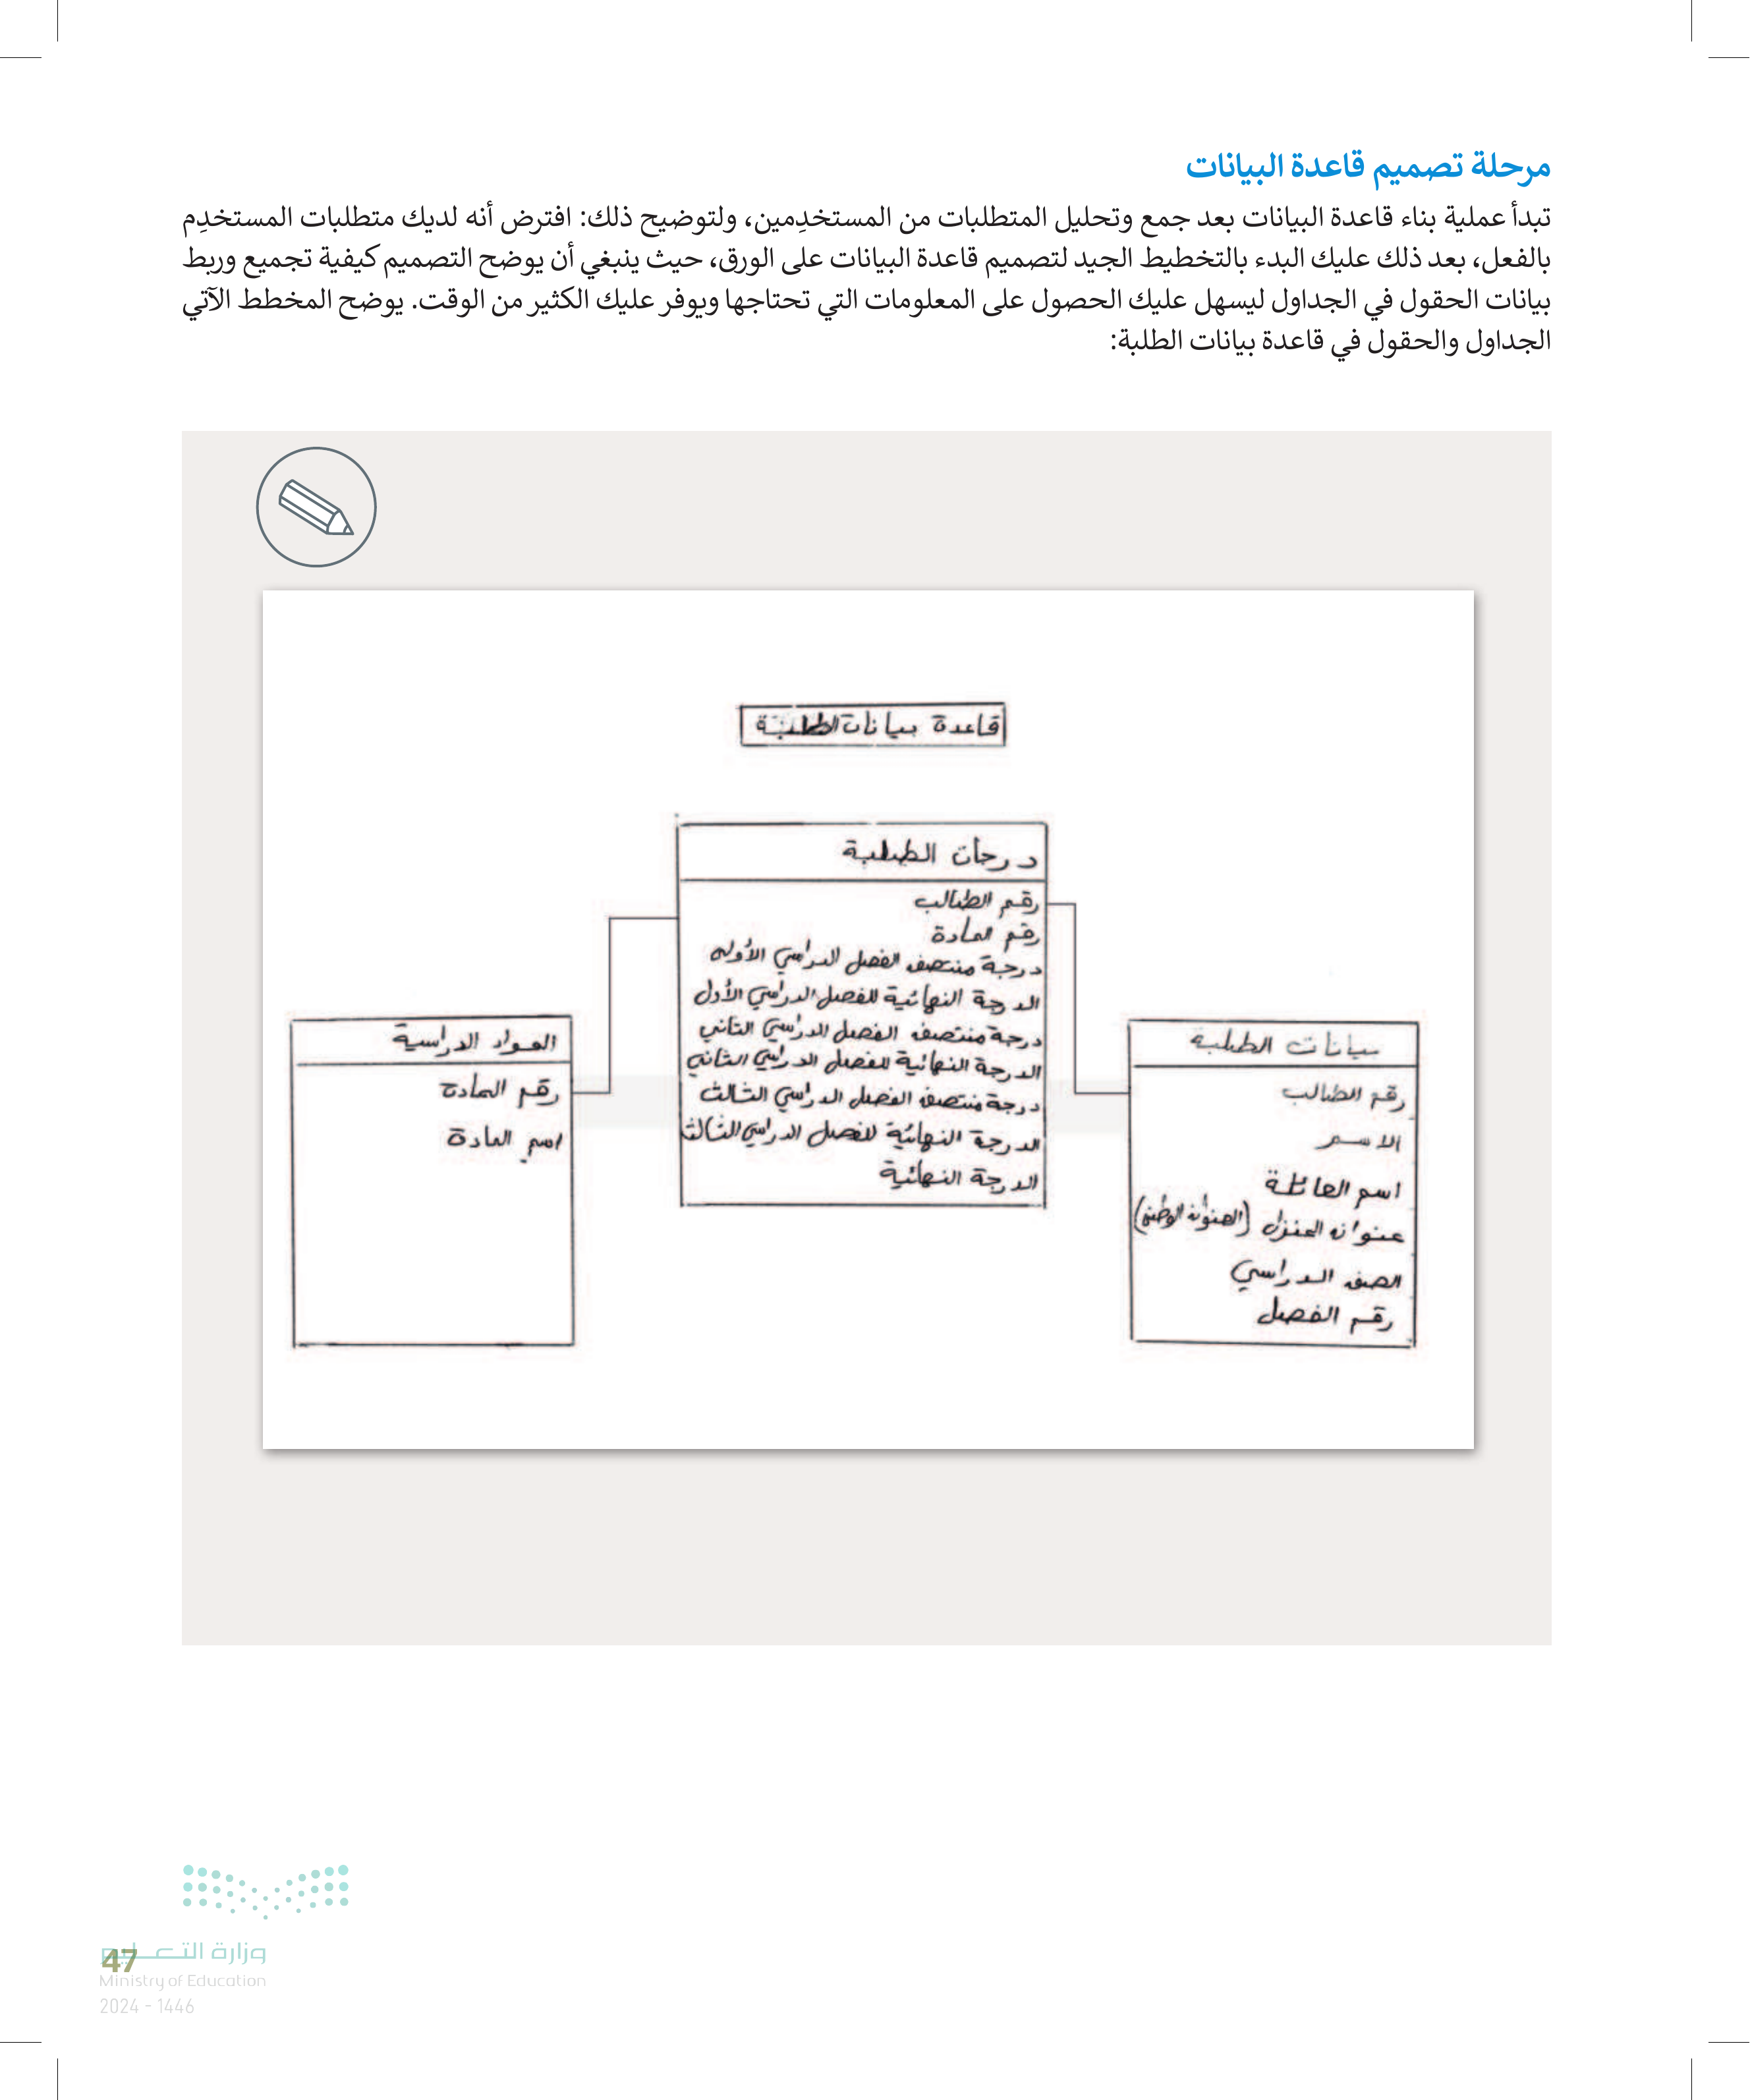 مرحلة تصميم قاعدة البيانات
تبدأ عملية بناء قاعدة البيانات بعد جمع وتحليل المتطلبات من المستخدِمين، ولتوضيح ذلك: افترض أنه لديك متطلبات المستخدِم
بالفعل، بعد ذلك عليك البدء بالتخطيط الجيد لتصميم قاعدة البيانات على الورق، حيث ينبغي أن يوضح التصميم كيفية تجميع وربط
بيانات الحقول في الجداول ليسهل عليك الحصول على المعلومات التي تحتاجها ويوفر عليك الكثير من الوقت. يوضح المخطط الآتي
الجداول والحقول في قاعدة بيانات الطلبة:
قاعدة بيانات الطلبة
درجات الطلبة
رقم الطالب
رقم المادة
درجة منتصف الفصل الدراسي الأول
الدرجة النهائية للفصل الدراسي الأول
درجة منتصف الفصل الدراسي الثاني
الدرجة النهائية للفصل الدراسي الثاني
درجة منتصف الفصل الدراسي الثالث
الدرجة النهائية للفصل الدراسي الثالث
الدرجة النهائية
بيانات الطلبة
رقم الطالب
الاسم
اسم العائلة
عنوان المنزل (العنوان الوطني)
الصف الدراسي
رقم الفصل
المواد الدراسية
رقم المادة
اسم المادة
وزارة التعليم
47
Ministry of Education
2024 - 1446